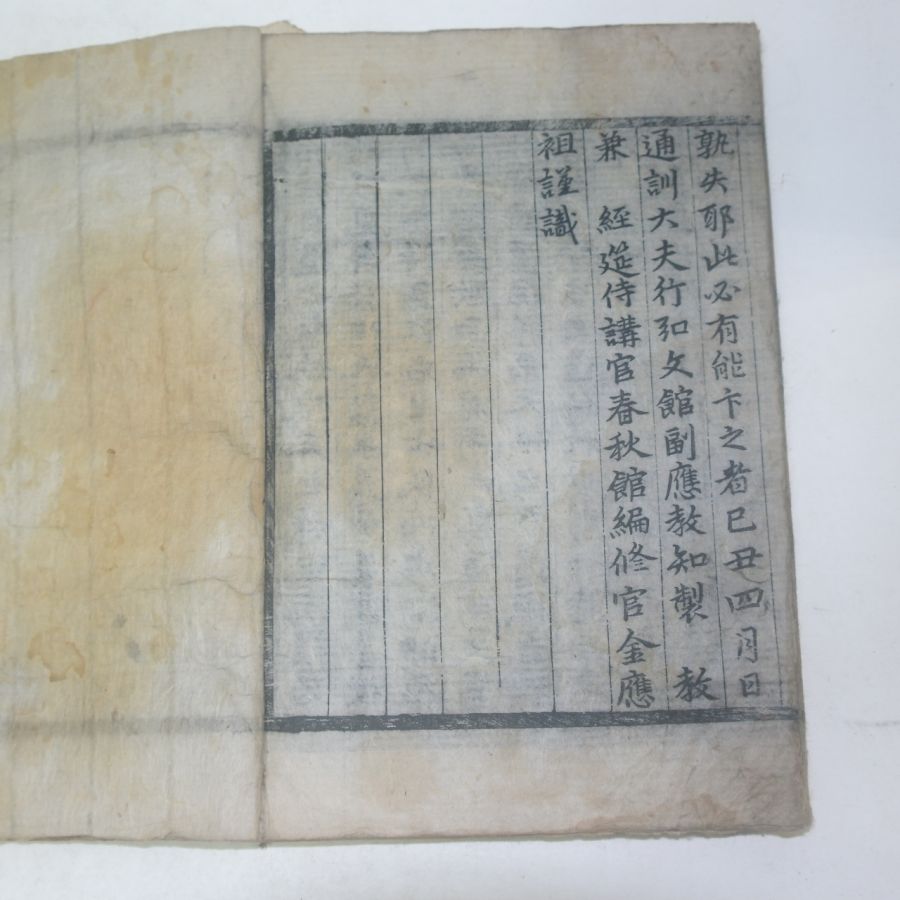 孰失耶此必有能卞之者己丑四月日
通訓大夫行弘文館副應教知製 教
兼 經筵侍講官春秋館編修官金應
祖謹識